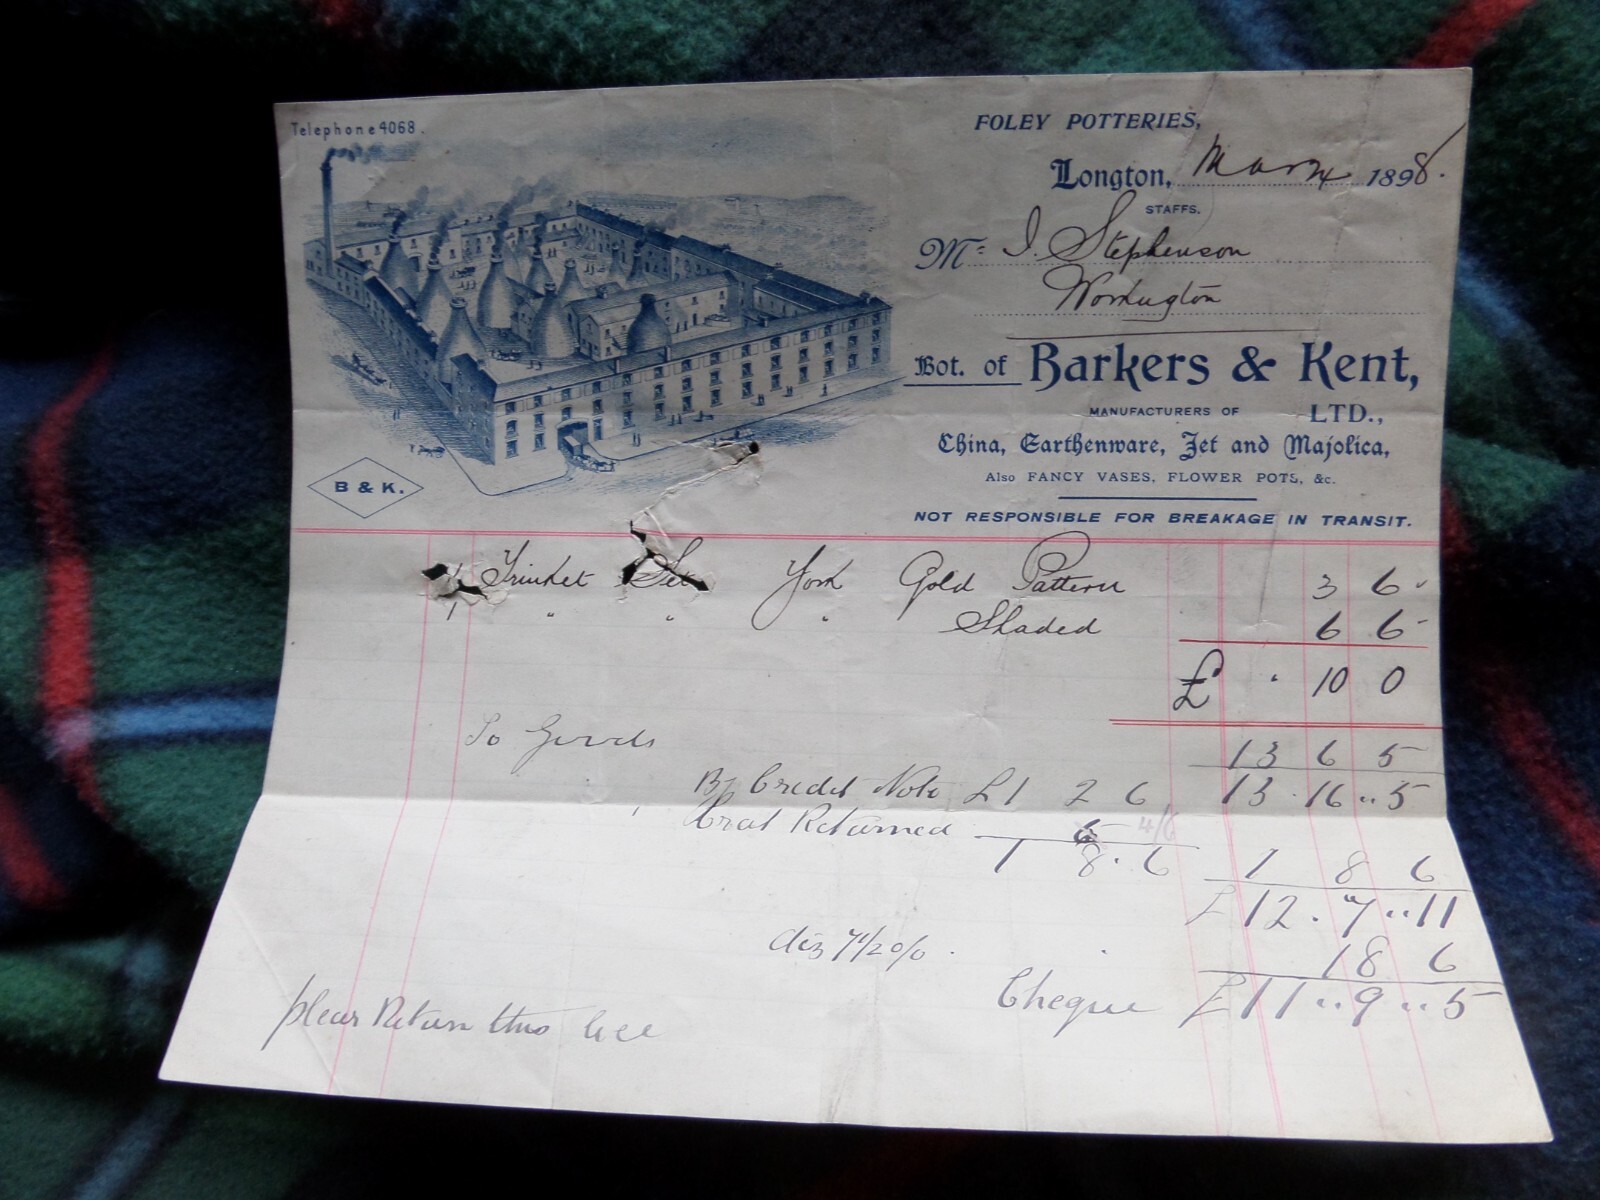 Telephone 4068.
FOLEY POTTERIES,
Longton, Mar 4 1898.
STAFFS.
Mr. I. Stephenson
Workington
Bot. of Barkers & Kent,
MANUFACTURERS OF LTD.,
China, Earthenware, Jet and Majolica,
Also FANCY VASES, FLOWER POTS, &c.
B & K.
NOT RESPONSIBLE FOR BREAKAGE IN TRANSIT.
1 Trinket Set York Gold Pattern 3 6
1 " " " Shaded 6 6
£ " 10 0
To Goods 13 6 5
By Credit Note £1 2 6 13 . 16 .. 5
Crat Returned 6 4/6
1 8 . 6 1 8 6
£12 . 7 .. 11
dis 7 1/2 o/o . 18 6
Cheque £11 .. 9 .. 5
pleas Return this